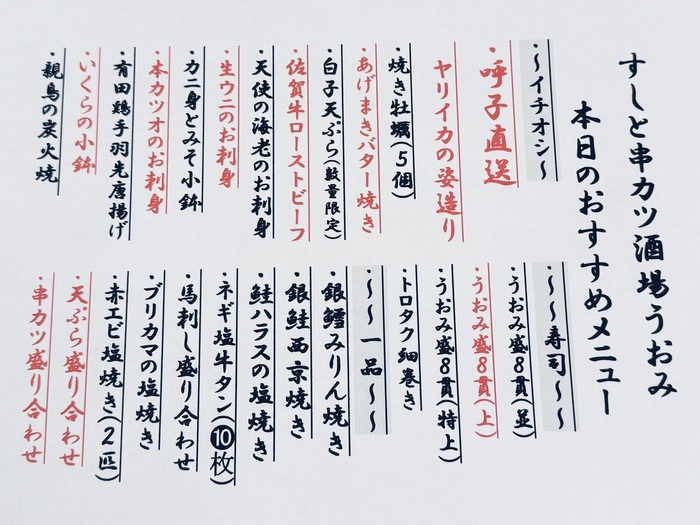 すしと串カツ酒場うおみ
本日のおすすめメニュー
・～イチオシ～
・呼子直送
ヤリイカの姿造り
・焼き牡蠣(5個)
・あげまきバター焼き
・白子天ぷら(数量限定)
・佐賀牛ローストビーフ
・天使の海老のお刺身
・生ウニのお刺身
・カニ身とみそ小鉢
・本カツオのお刺身
・有田鶏手羽先唐揚げ
・いくらの小鉢
・親鳥の炭火焼
・～～寿司～～
・うおみ盛8貫(並)
・うおみ盛8貫(上)
・うおみ盛8貫(特上)
・トロタク細巻き
・～～一品～～
・銀鱈みりん焼き
・銀鮭西京焼き
・鮭ハラスの塩焼き
・ネギ塩牛タン(❿枚)
・馬刺し盛り合わせ
・ブリカマの塩焼き
・赤エビ塩焼き(2匹)
・天ぷら盛り合わせ
・串カツ盛り合わせ